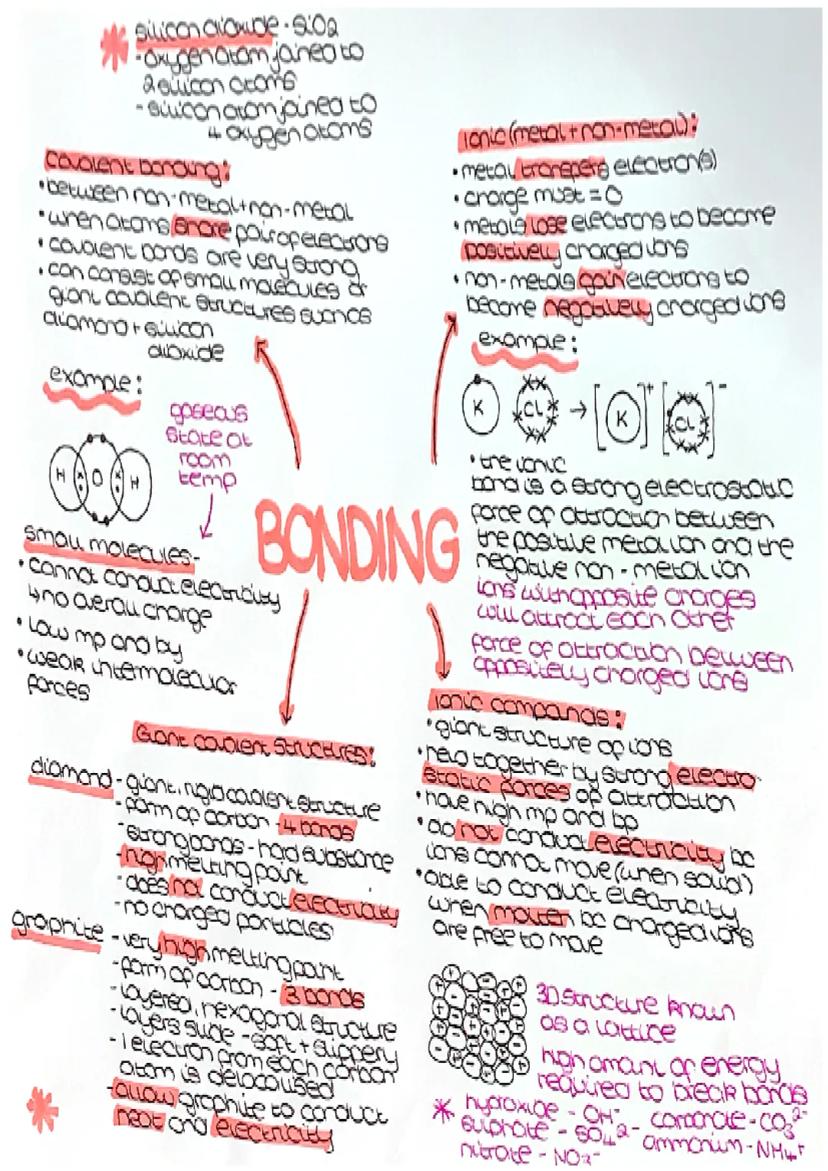 silicon dioxide - SiO2
- oxygen atom joined to
2 silicon atoms
- silicon atom joined to
4 oxygen atoms
covalent bonding:
• between non-metal + non-metal
• when atoms share pair of electrons
• covalent bonds are very strong
• can consist of small molecules or
giant covalent structures such as
diamond + silicon
dioxide
example:
H O H
gaseous
state at
room
temp
small molecules -
• cannot conduct electricity
↳ no overall charge
• low mp and bp
• weak intermolecular
forces
BONDING
Ionic (metal + non-metal):
• metal transfers electron(s)
• charge must = 0
• metals lose electrons to become
positively charged ions
• non-metals gain electrons to
become negatively charged ions
example:
K Cl → [K]⁺ [Cl]⁻
• the ionic
bond is a strong electrostatic
force of attraction between
the positive metal ion and the
negative non-metal ion
ions with opposite charges
will attract each other
force of attraction between
oppositely charged ions
Giant covalent structures:
diamond - giant, rigid covalent structure
- form of carbon - 4 bonds
- strong bonds - hard substance
- high melting point
- does not conduct electricity
- no charged particles
graphite - very high melting point
- form of carbon - 3 bonds
- layered, hexagonal structure
- layers slide - soft + slippery
- 1 electron from each carbon
atom is delocalised
- allow graphite to conduct
heat and electricity
Ionic compounds:
• giant structure of ions
• held together by strong electro-
static forces of attraction
• have high mp and bp
• do not conduct electricity bc
ions cannot move (when solid)
• able to conduct electricity
when molten bc charged ions
are free to move
3D structure known
as a lattice
high amount of energy
required to break bonds
* hydroxide - OH⁻ carbonate - CO₃²⁻
sulphate - SO₄²⁻ ammonium - NH₄⁺
nitrate - NO₃⁻